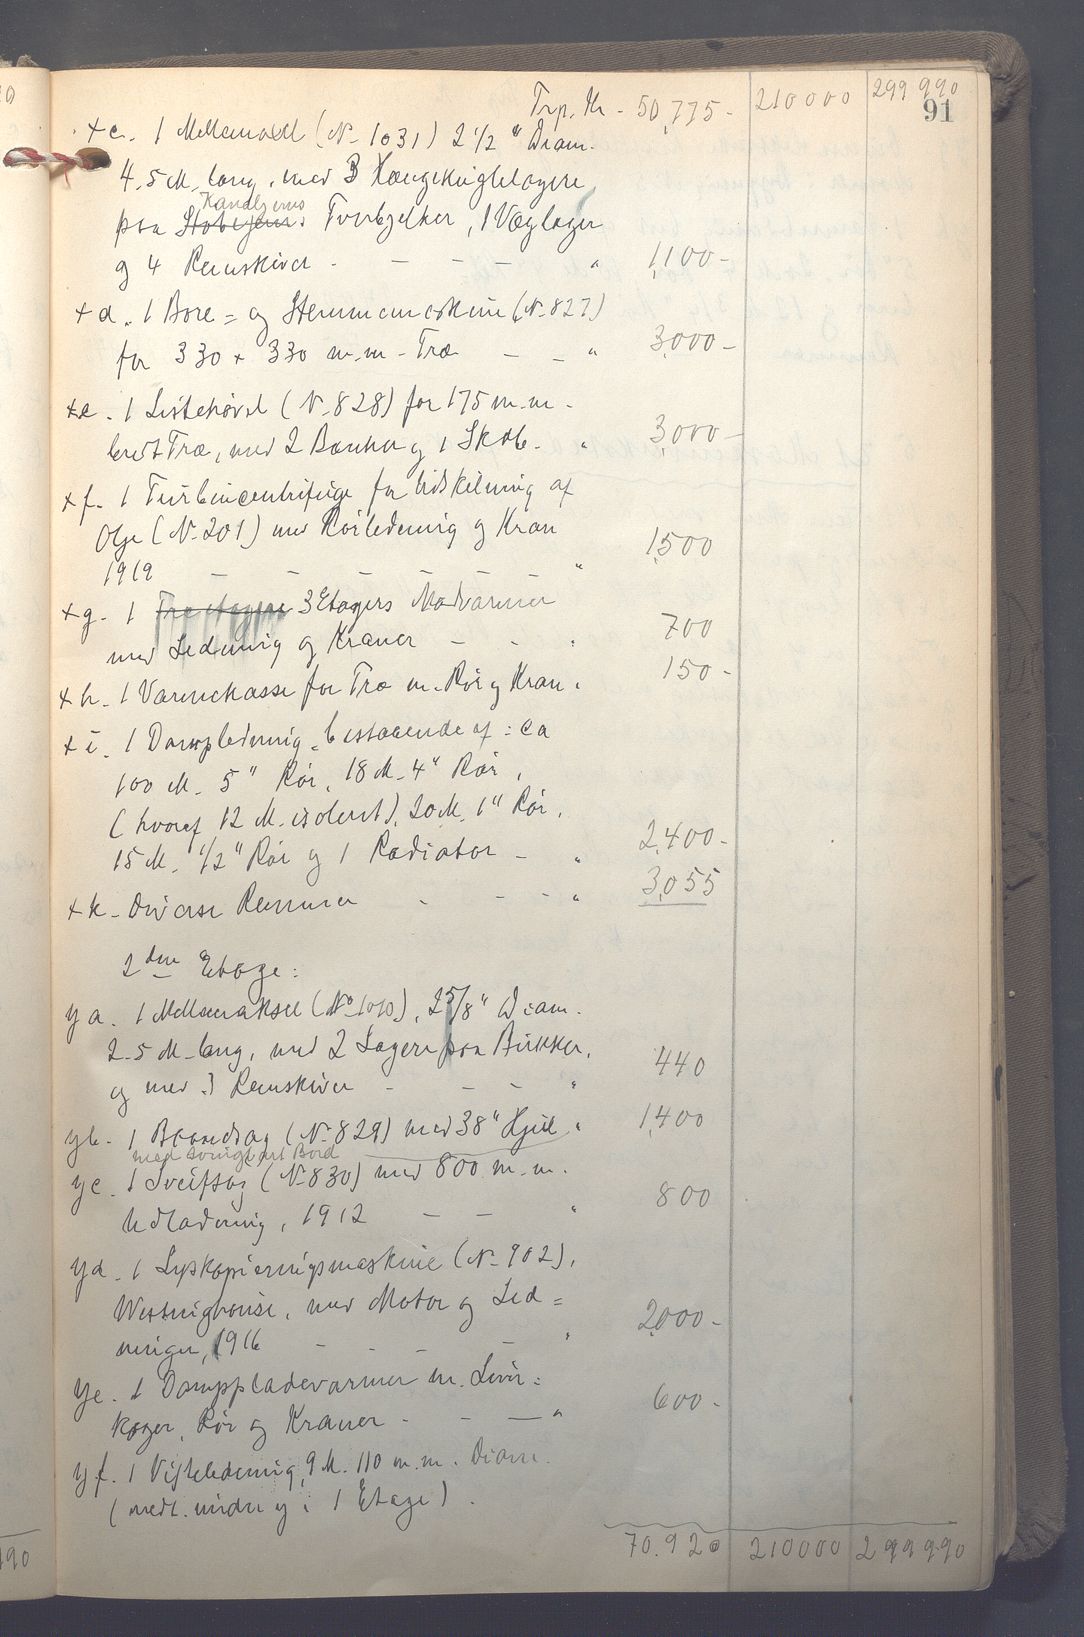 Trp. Kr. 50,775 - 210000 299 990
91
xc. 1 Mellemaxel (No 1031) 2 1/2" Diam.
4.5 M. lang, med 3 Hængekuglelagere
Kanaljerns
paa Stobejerns Tverbjelker, 1 Væglager
og 4 Remskiver - - - - " 1,100 -
xd. 1 Bore= og Stemmemaskine (No 827)
for 330 x 330 m.m. Træ - - " 3,000 -
xe. 1 Listehøvel (No 828) for 175 m.m.
bredt Træ, med 2 Bænker og 1 Skab. " 3,000 -
xf. 1 Turbincentrifuge for Udskilning af
Olje (No 201) med Rørledning og Kran
1919 - - - - - - " 1,500
xg. 1 Træetagers 3 Etagers Madvarmer
med Ledning og Kraner - - " 700
xh. 1 Varmekasse for Træ m. Rør og Kran " 150 -
xi. 1 Dampledning, bestaaende af: ca
100 M. 5" Rør, 18 M. 4" Rør,
(hvoraf 12 M. isoleret), 20 M. 1" Rør,
15 M. 1/2" Rør og 1 Radiator - " 2,400 -
xk. Diverse Remmer - - - " 3,055
2den Etage:
ya. 1 Mellemaksel (No 1010), 2 5/8" Diam.
2.5 M. lang, med 2 Lagere paa Bukker,
og med 3 Remskiver - - - " 440
yb. 1 Baandsag (No 829) med 38" Hjul " 1,400
med svingbart Bord
yc. 1 Sveifsag (No 830) med 800 m.m.
Udladning, 1912 - - " 800
yd. 1 Lyskopieringsmaskine (No 902),
Westinghouse, med Motor og Led=
ninger, 1916 - - - - " 2,000 -
ye. 1 Dampladevarmer m. Lim=
koger, Rør og Kraner - - - " 600 -
yf. 1 Vifteledning, 9 M. 110 m.m. Diam.
(nedl. under yi 1 Etage).
70.920 210000 299990